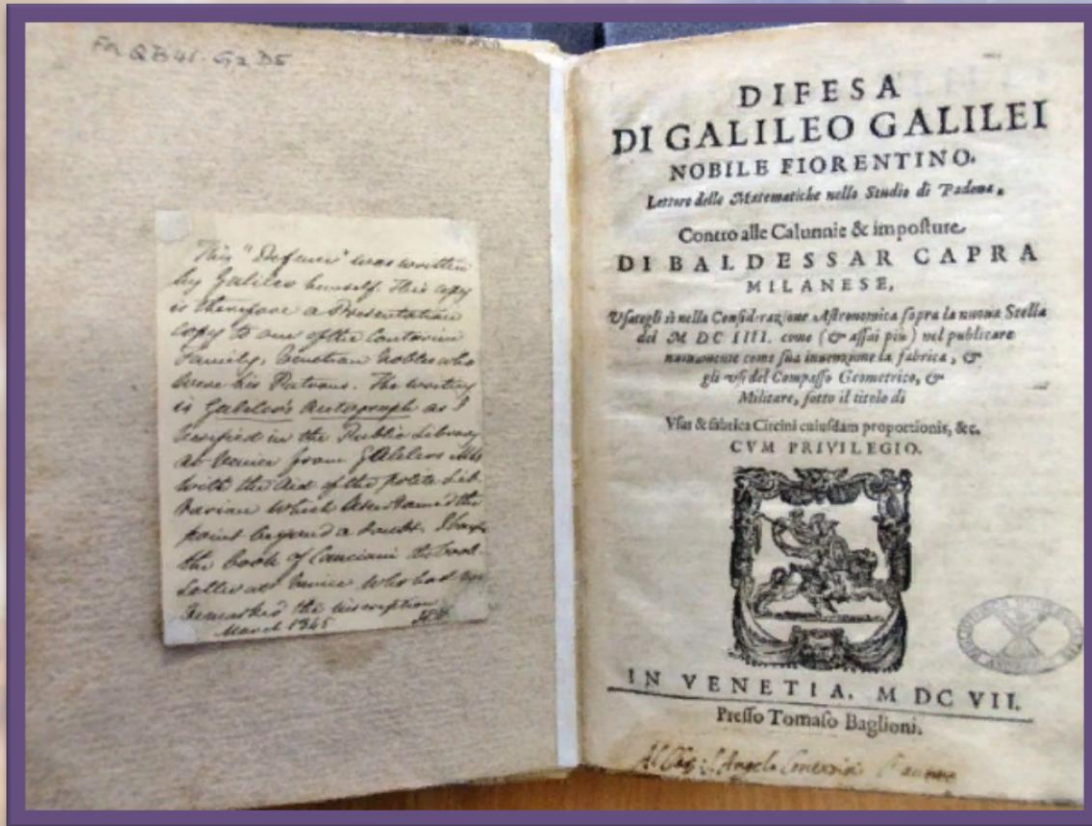 For QB41. G2 D5
This "Defence" was written
by Galileo himself. This copy
is therefore a Presentation
copy to one of the Contarini
Family, Venetian Nobles who
were his Patrons. The writing
is Galileo's Autograph as I
in the Public Library
at Venice from Galileo's MSS
with the aid of the polite Lib-
rarian which the
point beyond a doubt. I
the book of Canciani the book-
seller at Venice who had
remarked the inscription
March 1845
DIFESA
DI GALILEO GALILEI
NOBILE FIORENTINO.
Lettore delle Matematiche nello Studio di Padoua,
Contro alle Calunnie & imposture
DI BALDESSAR CAPRA
MILANESE,
Vsategli sì nella Considerazione Astronomica sopra la nuoua Stella
del M DC IIII. come (& assai più) nel publicare
nuouamente come sua inuenzione la fabrica, &
gli vsi del Compasso Geometrico, &
Militare, sotto il titolo di
Vsus & fabrica Circini cuiusdam proportionis, &c.
CVM PRIVILEGIO.
IN VENETIA, M DC VII.
Presso Tomaso Baglioni.